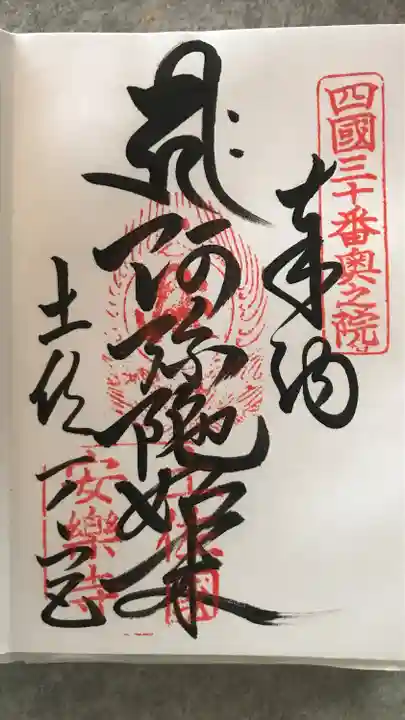 四國三十番奥之院
奉納
阿弥陀如来
土佐國
安樂寺
土佐